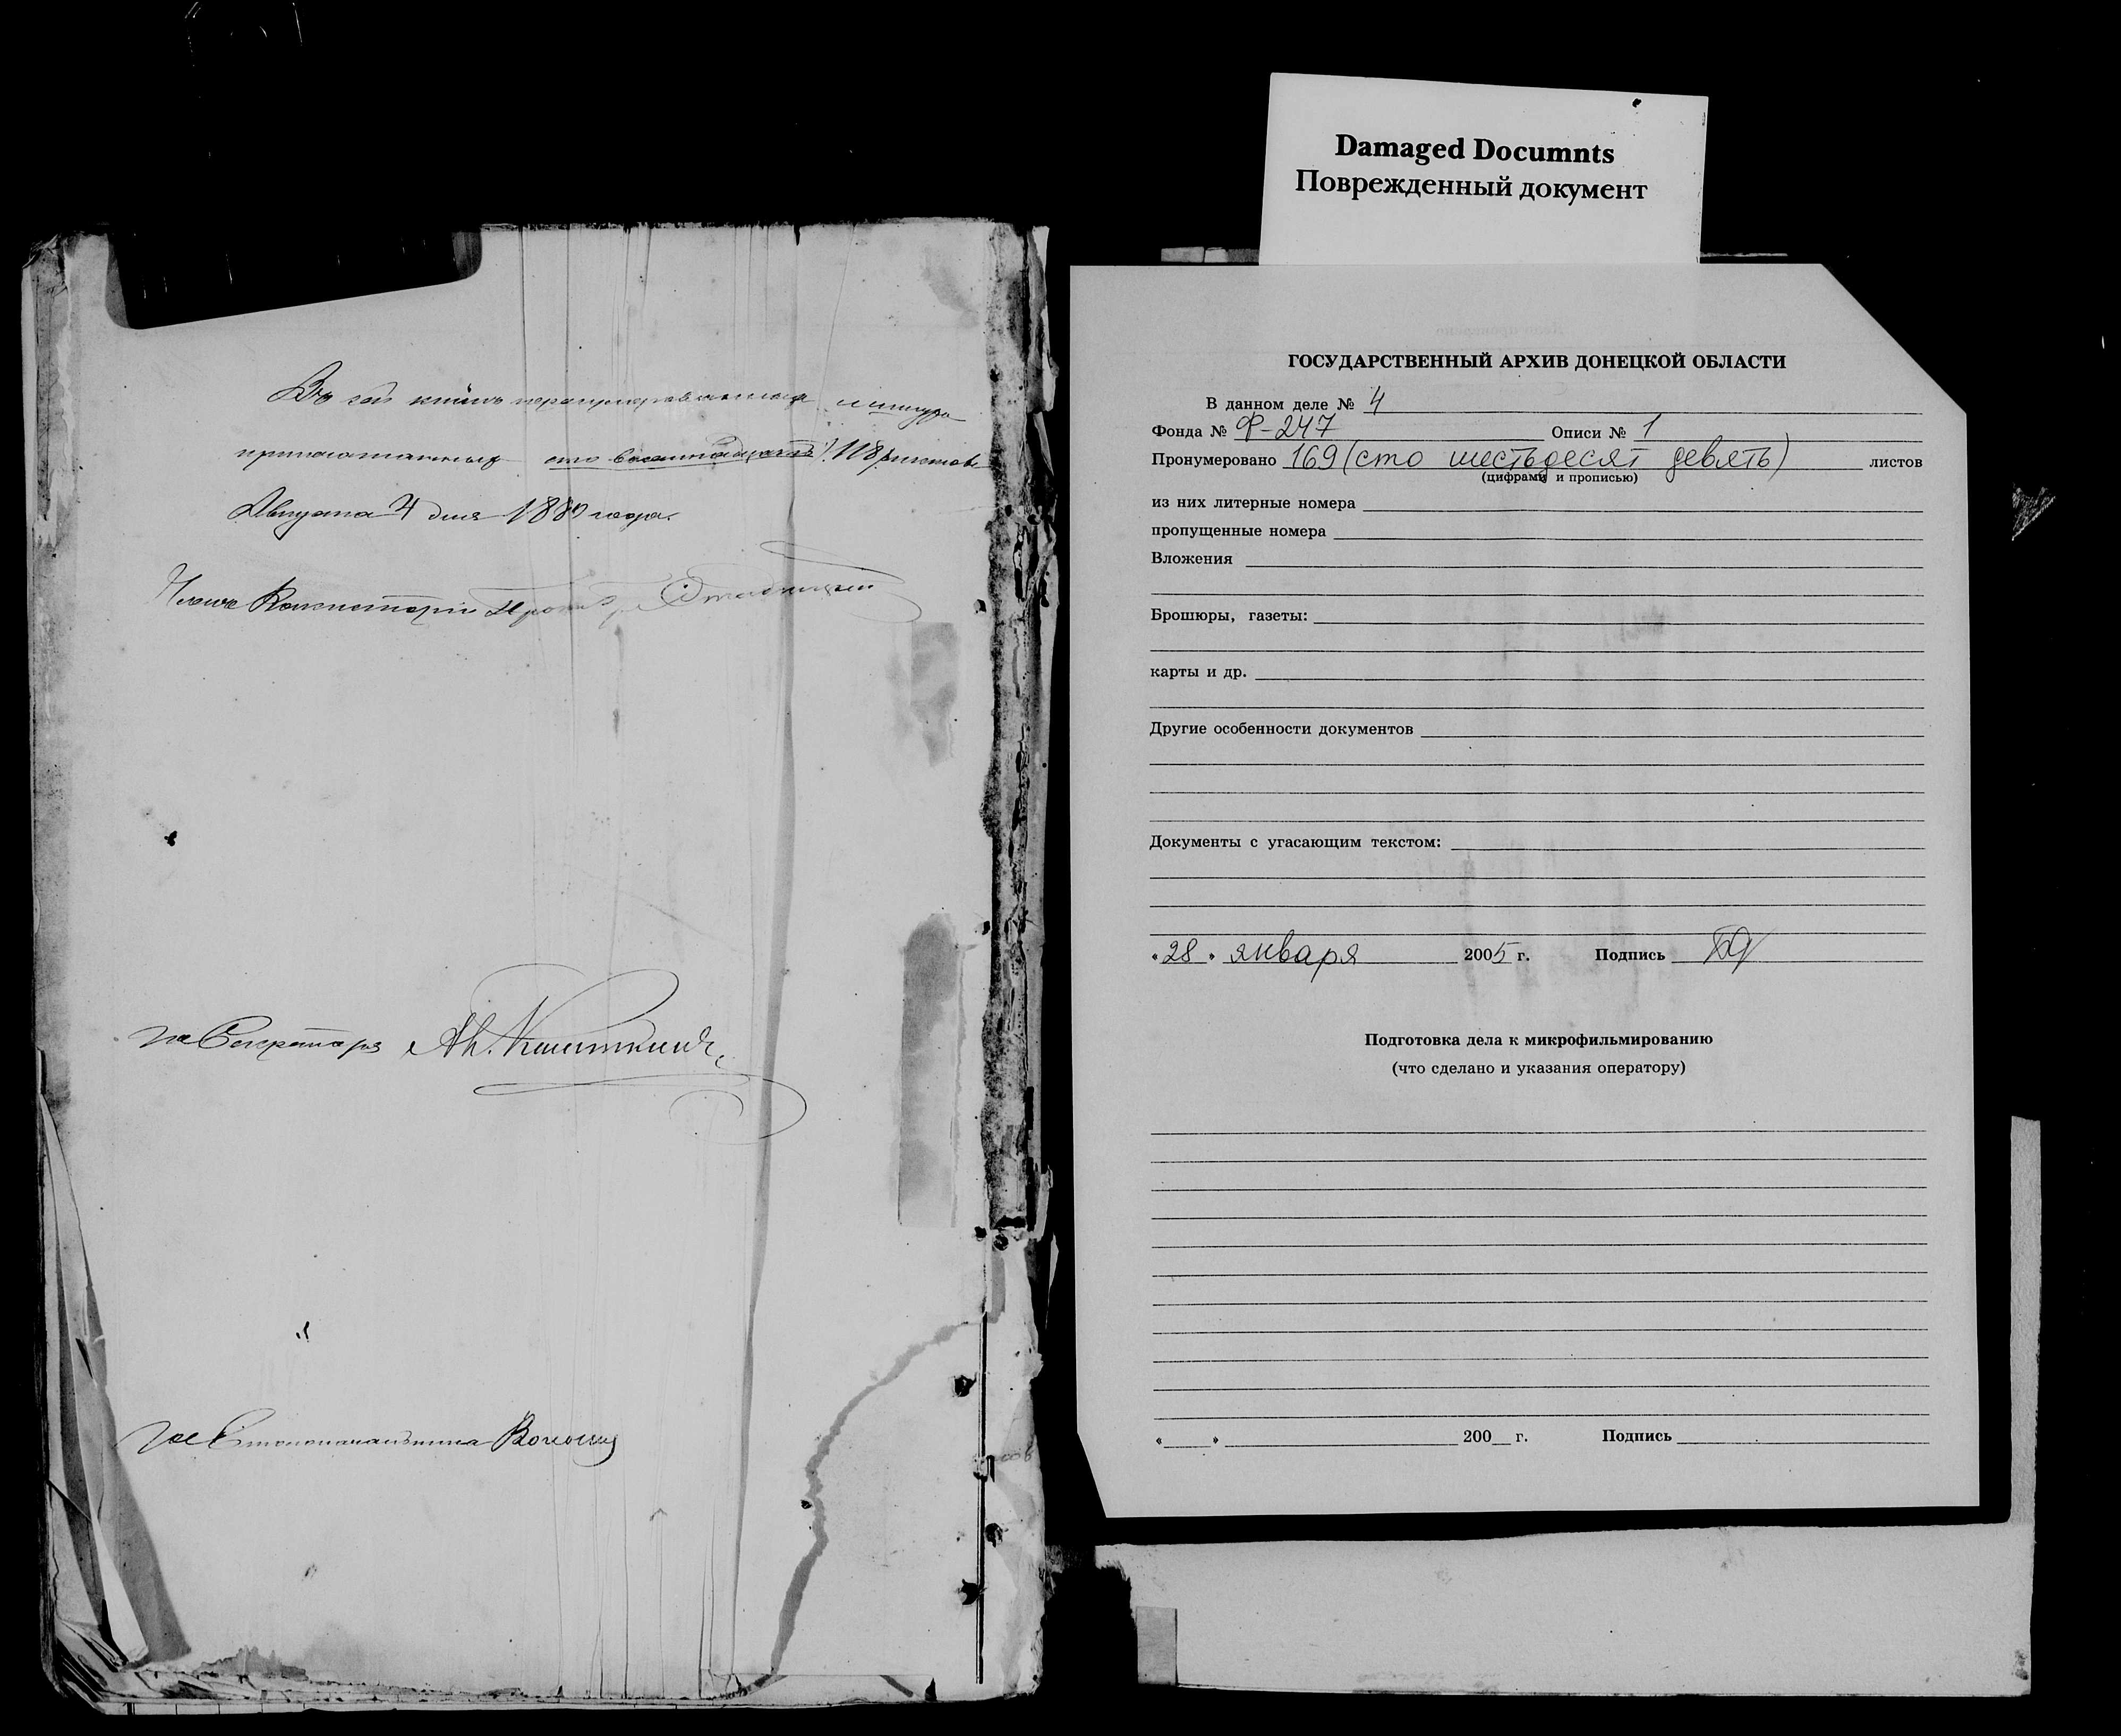 Въ сей книгѣ перенумерованныхъ и шнуро
припечатанныхъ сто восемнадцать /118/ листовъ
Августа 4 дня 1880 года.
Членъ Консисторіи
За Секретаря
За Столоначальника
Damaged Documnts
Поврежденный документ
ГОСУДАРСТВЕННЫЙ АРХИВ ДОНЕЦКОЙ ОБЛАСТИ
В данном деле № 4
Фонда № Ф-247 Описи № 1
Пронумеровано 169 (сто шестьдесят девять) листов
(цифрами и прописью)
из них литерные номера
пропущенные номера
Вложения
Брошюры, газеты:
карты и др.
Другие особенности документов
Документы с угасающим текстом:
«28» января 2005 г. Подпись
Подготовка дела к микрофильмированию
(что сделано и указания оператору)
« » 200 г. Подпись